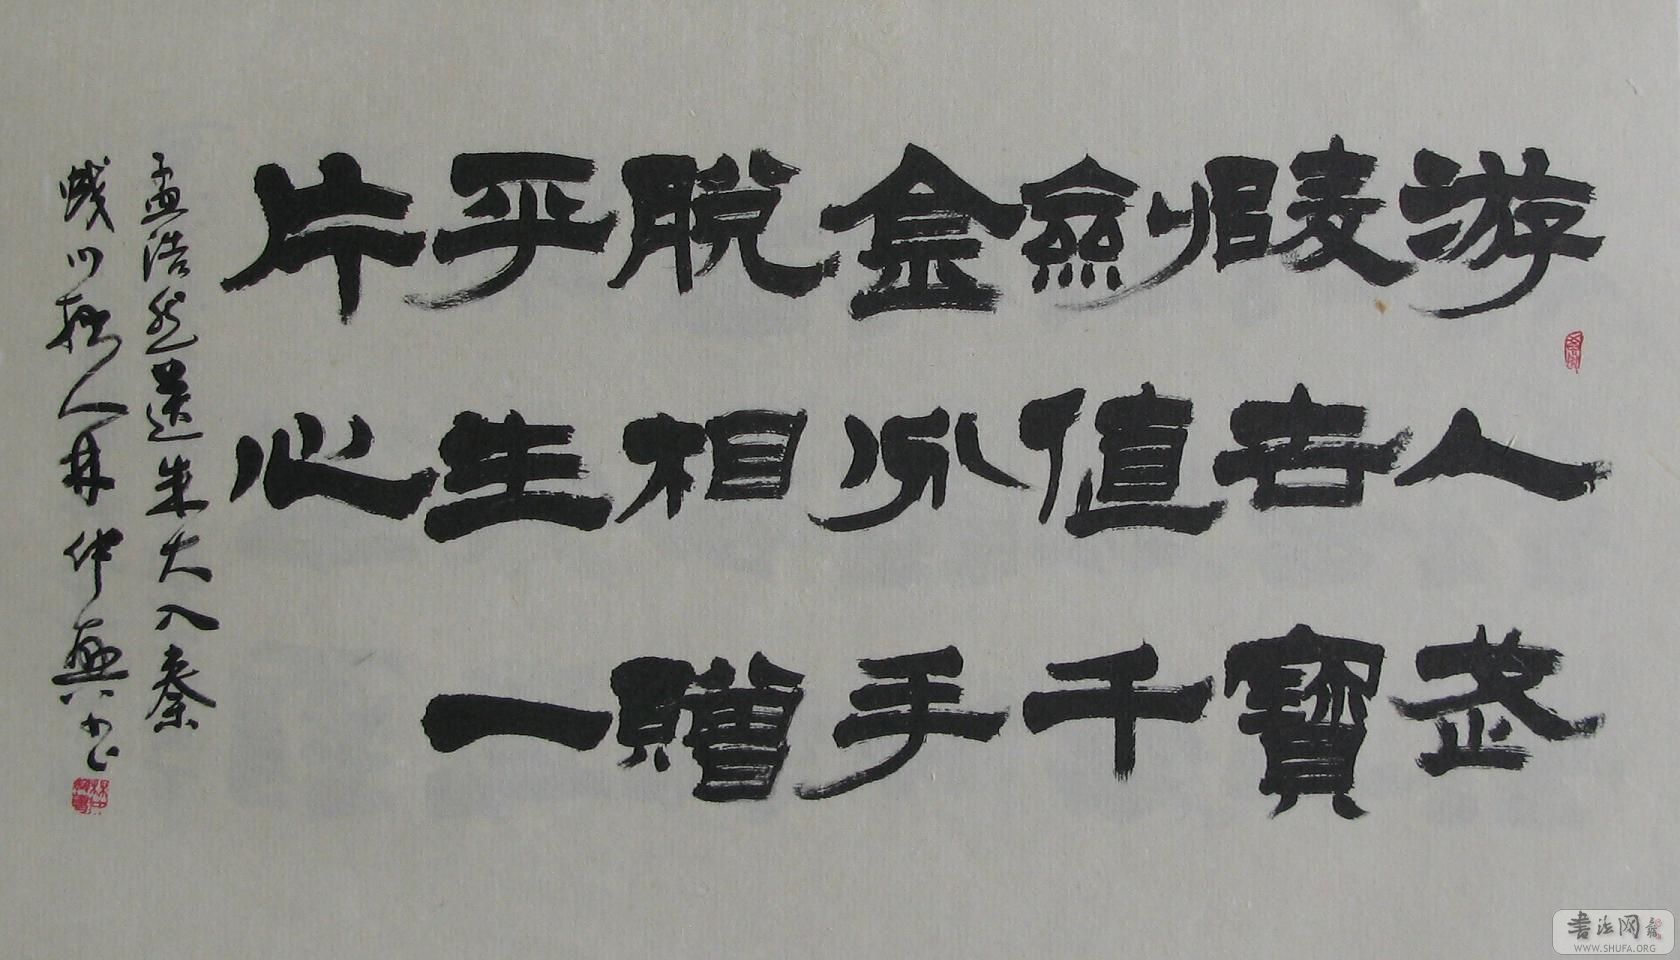 游人武
陵去寶
劍值千
金分手
脫相贈
平生一
片心
孟浩然送朱大入秦
人林仲興书
書法网
WWW.SHUFA.ORG